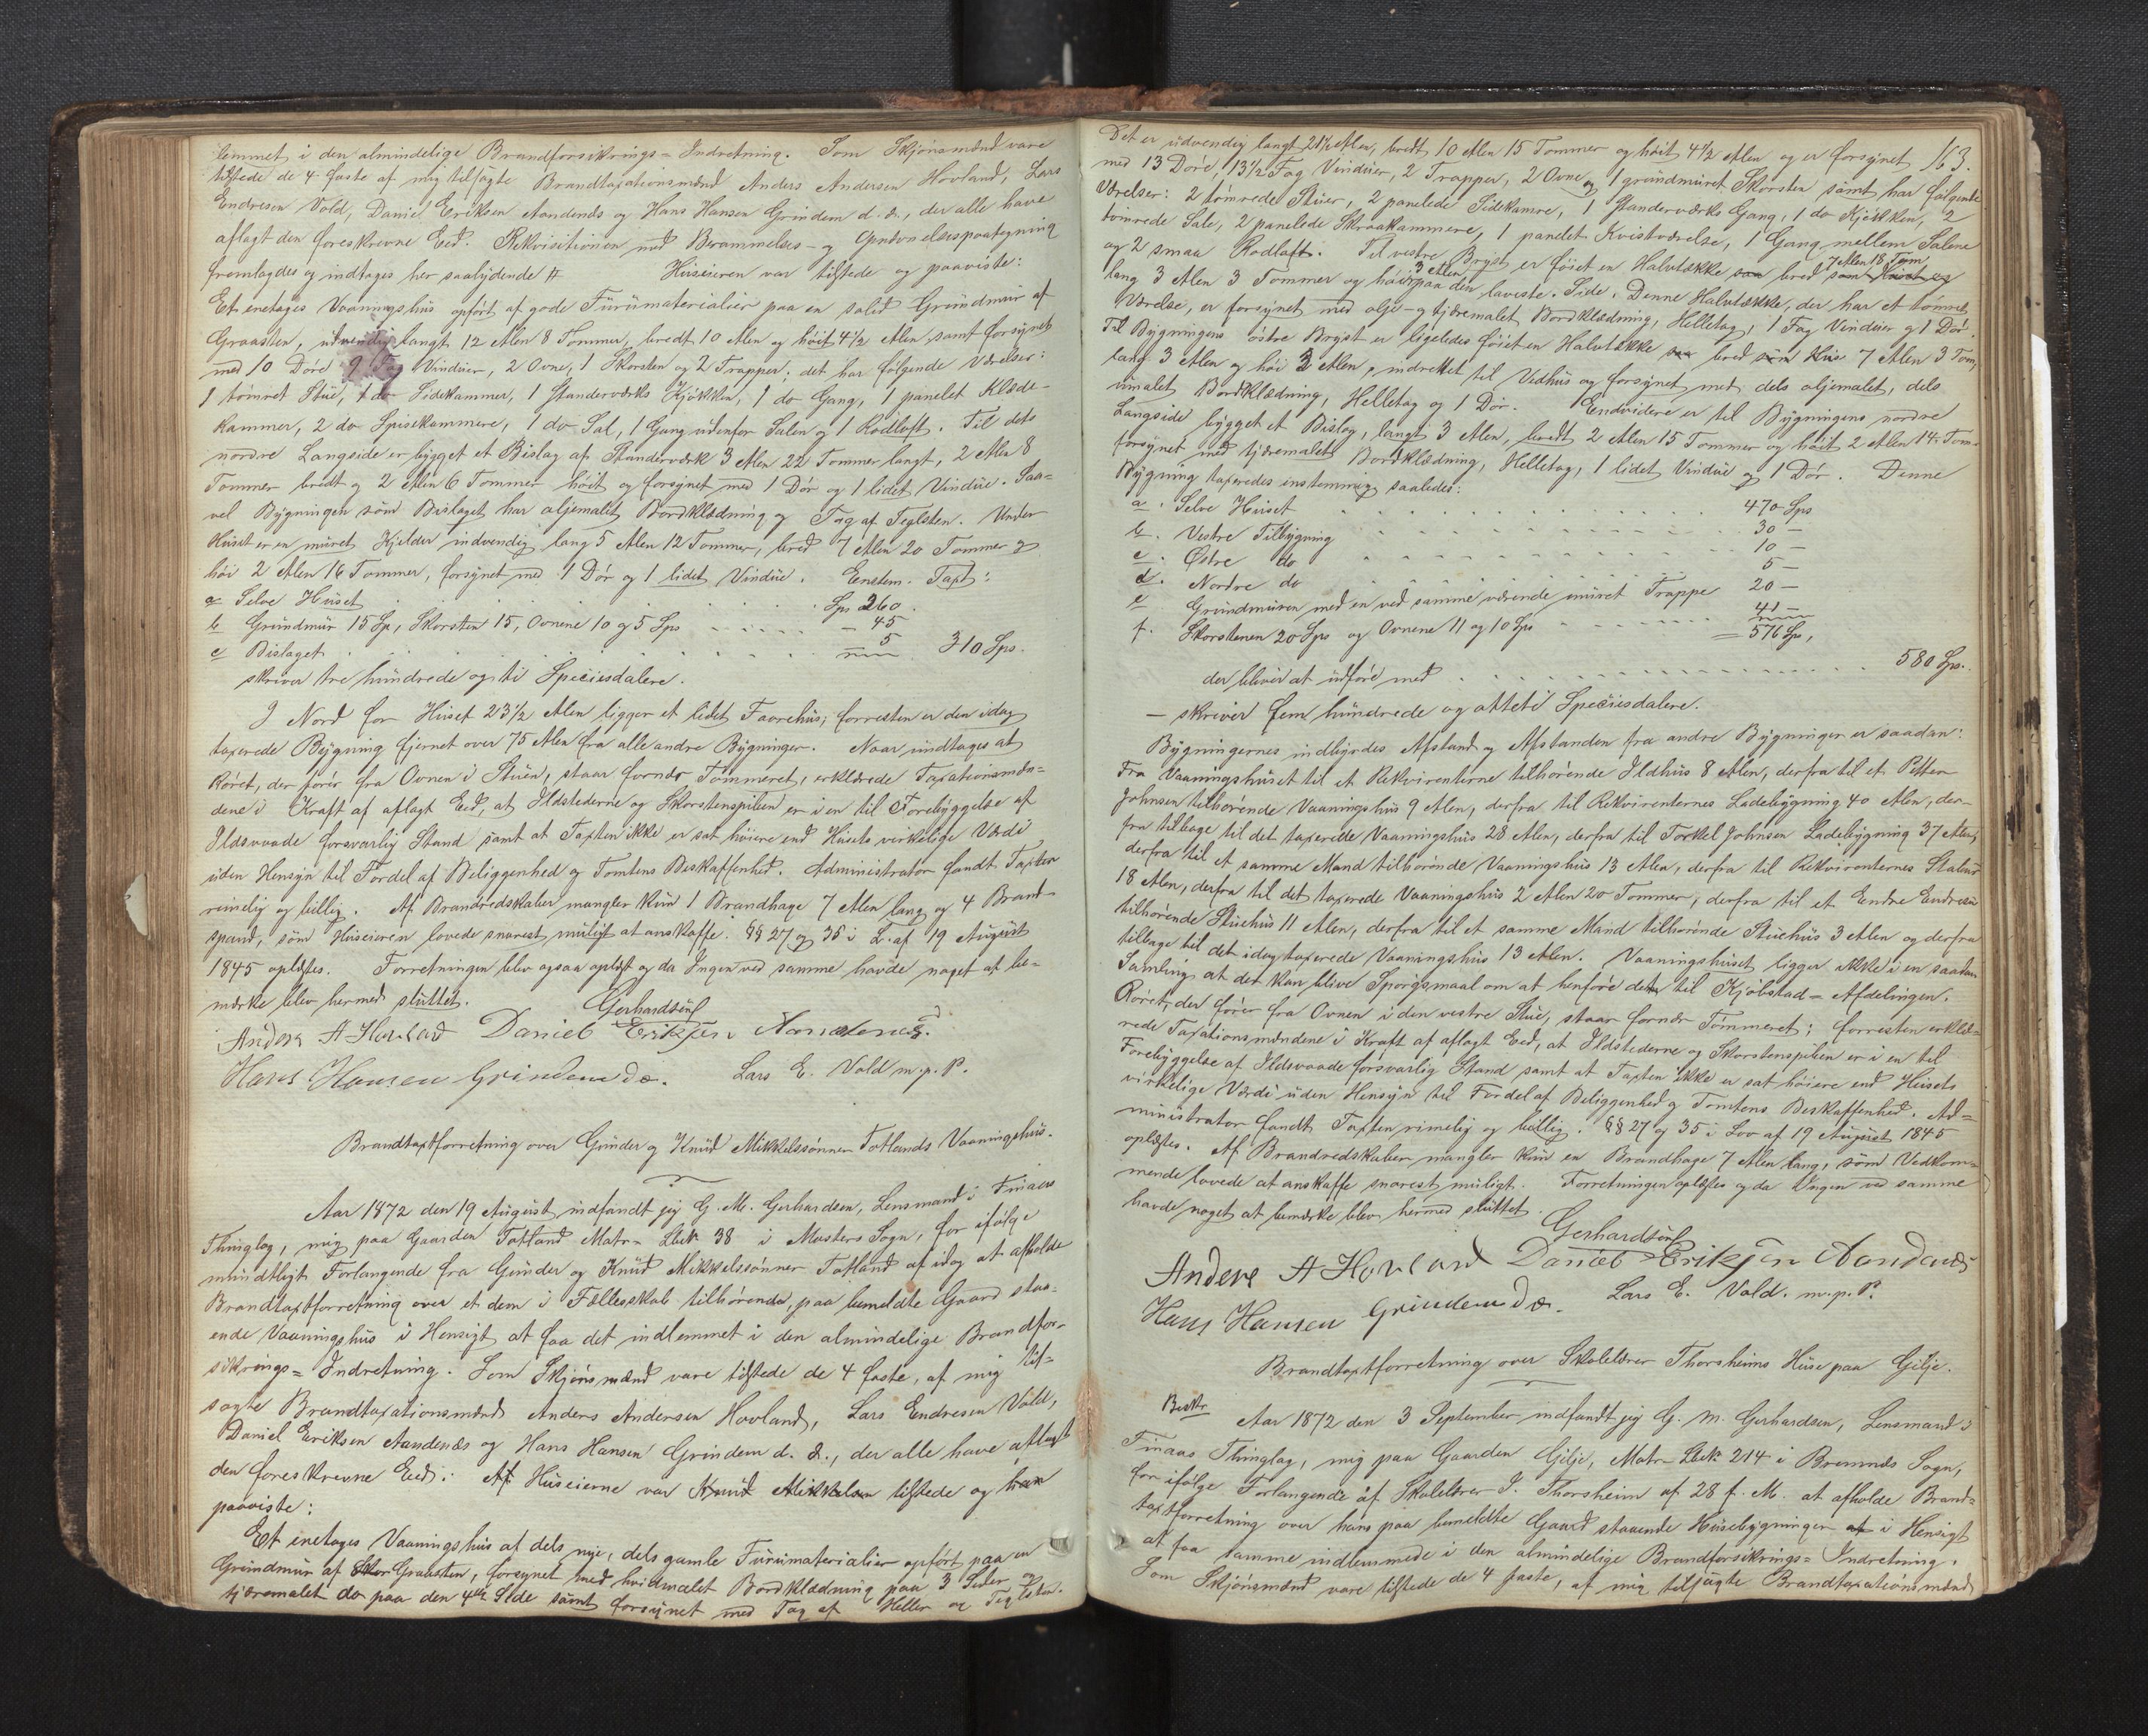 lemmet i den almindelige Brandforsikrings-Indretning. Som Skjönsmænd vare
tilstede de 4 faste af mig tilsagte Brandtaxationsmænd Anders Andersen Hovland, Lars
Endresen Vold, Daniel Eriksen Aandenæs og Hans Hansen Grindem d. æ., der alle have
aflagt den foreskrevne Eed. Rekvisitionen med Berammelses- og Opnævnelsespaategning
fremlagdes og indtages her saalydende # Huseieren var tilstede og paaviste:
Et enetages Vaaningshus opført af gode Furumaterialier paa en solid Grundmur af
Graasten, udvendig langt 12 Alen 8 Tommer, bredt 10 Alen og höit 4 1/2 Alen, samt forsynet
med 10 Döre 9 Fag Vinduer, 2 Ovne, 1 Skorsten og 2 Trapper; det har følgende Værelser:
1 tömret Stue, 1 do Sidekammer, 1 Standerværks Kjökken, 1 do Gang, 1 panelet Klæde-
kammer, 2 do Spisekammere, 1 do Sal, 1 Gang udenfor Salen og 1 Rodloft. Til dets
nordre Langside er bygget et Bislag af Standerværk 3 Alen 22 Tommer langt, 2 Alen 8
Tommer bredt og 2 Alen 6 Tommer höit og forsynet med 1 Dör og 1 lidet Vindue. Saa-
vel Bygningen som Bislaget har oljemalet Bordklædning og Tag af Teglsten. Under
Huset er en muret Kjelder indvendig lang 5 Alen 12 Tommer, bred 7 Alen 20 Tommer og
höi 2 Alen 16 Tommer, forsynet med 1 Dör og 1 lidet Vindue. Enstem. Taxt:
a Selve Huset . . . . . Sps 260.
b Grundmur 15 Sp, Skorsten 15, Ovnene 10 og 5 Sps . . . . — 45
c Bislaget . . . . . 5 310 Sps.
skriver tre hundrede og ti Speciesdalere.
I Nord for Huset 23 1/2 Alen ligger et lidet Faarehus; forresten er den idag
taxerede Bygning fjernet over 75 Alen fra alle andre Bygninger. Naar undtages at
Röret, der förer fra Ovnen i Stuen, staar fornær Tömmeret, erklærede Taxationsmæn-
dene i Kraft af aflagt Eed, at Ildstederne og Skorstenspiben er i en til Forebyggelse af
Ildsvaade forsvarlig Stand samt at Taxten ikke er sat höiere end Husets virkelige Værdi
uden Hensyn til Fordel af Beliggenhed og Tomtens Beskaffenhed. Administrator fandt Taxten
rimelig og billig. Af Brandredskaber mangler kun 1 Brandhage 7 Alen lang og 4 Brand-
spand, som Huseieren lovede snarest muligt at anskaffe. §§ 27 og 35 i L. af 19 August
1845 oplæstes. Forretningen blev ogsaa oplæst og da Ingen ved samme havde noget at be-
mærke blev hermed sluttet.
Gerhardsen
Anders A Hovland Daniel Eriksen Aandenæs.
Hans Hansen Grindem d æ. Lars E. Vold m. p. P.
Brandtaxtforretning over Gunder og Knud Mikkelssönner Totlands Vaaningshus.
Aar 1872 den 19 August indfandt jeg G. M. Gerhardsen, Lensmand i Finaas
Thinglag, mig paa Gaarden Totland Matr- Løb. 38 i Mosters Sogn, for ifølge
mundtligt Forlangende fra Gunder og Knud Mikkelssønner Totland af idag at afholde
Brandtaxtforretning over et dem i Fællesskab tilhørende, paa bemeldte Gaard staa-
ende Vaaningshus i Hensigt at faa det indlemmet i den almindelige Brandfor-
sikrings-Indretning. Som Skjönsmænd vare tilstede de 4 faste, af mig til-
sagte Brandtaxationsmænd Anders Andersen Hovland, Lars Endresen Vold,
Daniel Eriksen Aandenæs og Hans Hansen Grindem d. æ., der alle have aflagt
den foreskrevne Eed. Af Huseierne var Knud Mikkelsen tilstede og han
paaviste:
Et enetages Vaaningshus af dels nye, dels gamle Furumaterialier opfört paa en
Grundmur af Graasten, forsynet med hvidmalet Bordklædning paa 3 Sider og
tjæremalet do paa den 4de Side samt forsynet med Tag af Heller og Teglsten.
163.
Det er udvendig langt 21 1/2 Alen, bredt 10 Alen 15 Tommer og höit 4 1/2 Alen og er forsynet
med 13 Döre, 13 1/2 Fag Vinduer, 2 Trapper, 2 Ovne og 1 grundmuret Skorsten samt har følgende
Værelser: 2 tömrede Stuer, 2 panelede Sidekamre, 1 Standerværks Gang, 1 do Kjökken, 2
tömrede Sale, 2 panelede Skraakammere, 1 panelet Kvistværelse, 1 Gang mellem Salene
og 2 smaa Rodloft. Til vestre Bryst er föiet en Halvtække bred 7 Alen 18 Tom
lang 3 Alen 3 Tommer og höi 3 Alen paa den laveste Side. Denne Halvtække, der har et tömret
Værelse, er forsynet med olje- og tjæremalet Bordklædning, Helletag, 1 Fag Vinduer og 1 Dör.
Til Bygningens östre Bryst er ligeledes föiet en Halvtække bred 7 Alen 3 Tom,
lang 3 Alen og höi 3 Alen, indrettet til Vedhus og forsynet med dels oljemalet, dels
umalet Bordklædning, Helletag og 1 Dör. Endvidere er til Bygningens nordre
Langside bygget et Bislag, langt 3 Alen, bredt 2 Alen 15 Tommer og höit 2 Alen 14 Tom-
forsynet med tjæremalet Bordklædning, Helletag, 1 lidet Vindue og 1 Dör. Denne
Bygning taxeredes enstemmig saaledes:
a. Selve Huset . . . . . 470 Sps
b. Vestre Tilbygning . . . . . 30 —
c. Østre do . . . . . 10 —
d. Nordre do . . . . . 5 —
e Grundmuren med en ved samme værende muret Trappe 20 —
f. Skorstenen 20 Sps og Ovnene 11 og 10 Sps . . . . . 41 —
= 576 Sps,
der bliver at udføre med . . . . . 580 Sps.
— skriver fem hundrede og otteti Speciesdalere.
Bygningernes indbyrdes Afstand og Afstanden fra andre Bygninger er saadan:
Fra Vaaningshuset til et Rekvirenterne tilhörende Ildhus 8 Alen, derfra til et Petter
Johnsen tilhörende Vaaningshus 9 Alen, derfra til Rekvirenternes Ladebygning 40 Alen, der-
fra tilbage til det taxerede Vaaningshus 28 Alen, derfra til Torkel Johnsen Ladebygning 37 Alen,
derfra til et samme Mand tilhörende Vaaningshus 13 Alen, derfra til Rekvirenternes Stabur
18 Alen, derfra til det taxerede Vaaningshus 2 Alen 20 Tommer, derfra til et Endre Endresen
tilhørende Stuehus 11 Alen, derfra til et samme Mand tilhörende Stuehus 3 Alen og derfra
tilbage til det idag taxerede Vaaningshus 13 Alen. Vaaningshuset ligger ikke i en saadan
Samling at det kan blive Spörgsmaal om at henföre det til Kjöbstad-Afdelingen.
Röret, der förer fra Ovnen i den vestre Stue, staar fornær Tömmeret; forresten erklæ-
rede Taxationsmændene i Kraft af aflagt Eed, at Ildstederne og Skorstenspiben er i en til
Forebyggelse af Ildsvaade forsvarlig Stand samt at Taxten ikke er sat höiere end Husets
virkelige Værdi uden Hensyn til Fordel af Beliggenhed og Tomtens Beskaffenhed. Ad-
ministrator fandt Taxten rimelig og billig. §§ 27 og 35 i Lov af 19 August 1845
oplæstes. Af Brandredskaber mangler kun en Brandhage 7 Alen lang, som Vedkom-
mende lovede at anskaffe snarest muligt. Forretningen oplæstes og da Ingen ved samme
havde noget at bemærke blev hermed sluttet.
Gerhardsen
Anders A Hovland Daniel Eriksen Aandenæs
Hans Hansen Grindem d æ. Lars E. Vold. m. p. P.
Brandtaxtforretning over Skolelærer Thorsheims Huse paa Gilje.
Beskr
Aar 1872 den 3 September indfandt jeg G. M. Gerhardsen, Lensmand i
Finaas Thinglag, mig paa Gaarden Gilje, Matr- Løb. 214 i Bremnæs Sogn,
for ifølge Forlangende af Skolelærer J. Thorsheim af 28 f. M. at afholde Brand-
taxtforretning over hans paa bemeldte Gaard staaende Husebygninger i Hensigt
at faa samme indlemmede i den almindelige Brandforsikrings-Indretning.
Som Skjönsmænd vare tilstede de 4 faste, af mig tilsagte Brandtaxationsmænd